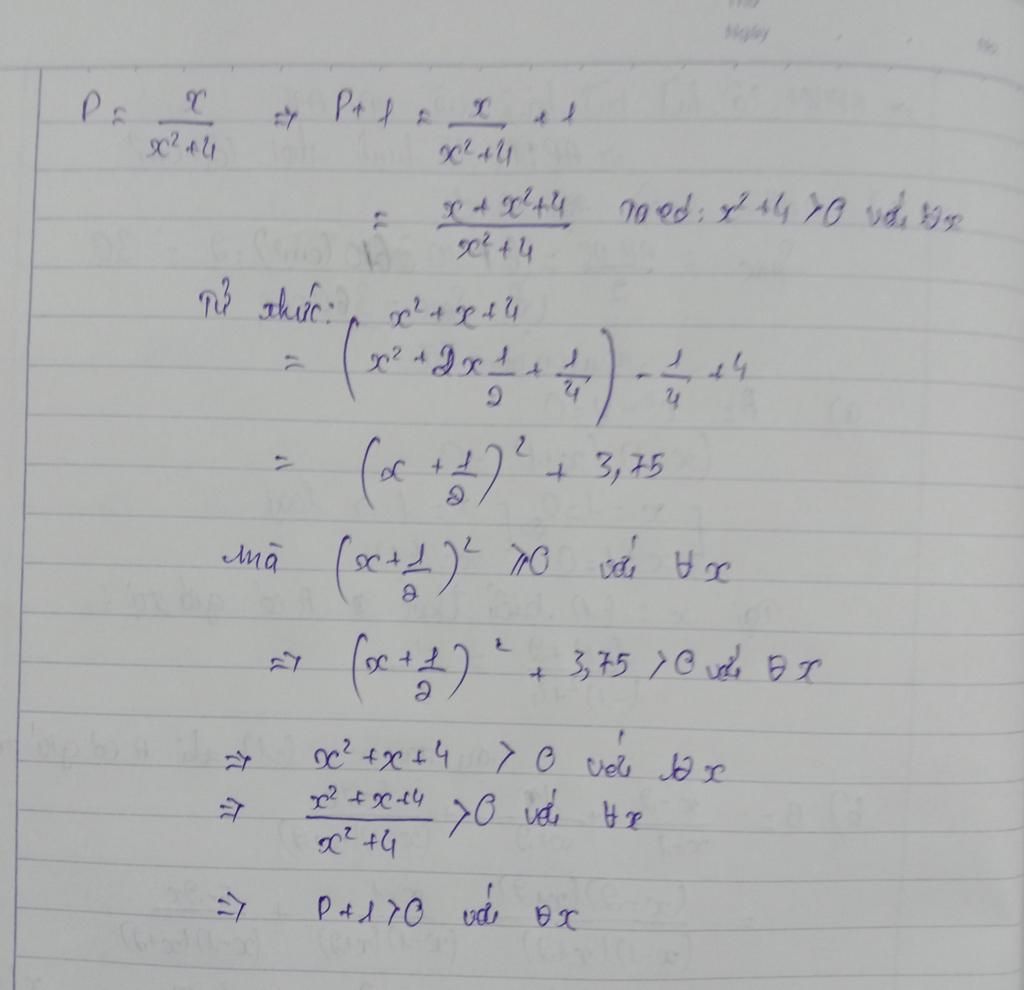 Ngày
No
P = x/(x²+4) => P+1 = x/(x²+4) + 1
= (x+x²+4)/(x²+4) Ta có: x²+4 > 0 với ∀x
Tử thức: x²+x+4
= (x² + 2x 1/2 + 1/4) - 1/4 + 4
= (x + 1/2)² + 3,75
Mà (x+1/2)² ≥ 0 với ∀x
=> (x+1/2)² + 3,75 > 0 với ∀x
=> x²+x+4 > 0 với ∀x
=> (x²+x+4)/(x²+4) > 0 với ∀x
=> P+1 > 0 với ∀x